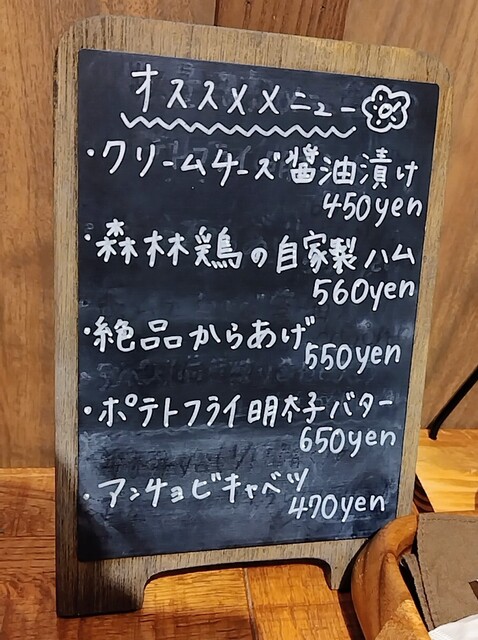 オススメメニュー
・クリームチーズ醤油漬け
450yen
・森林鶏の自家製ハム
560yen
・絶品からあげ
550yen
・ポテトフライ明太子バター
650yen
・アンチョビキャベツ
470yen